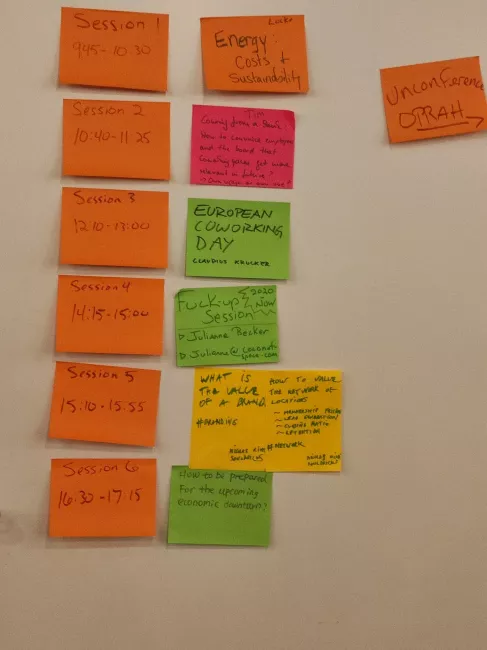 Session 1
945-10:30
Energy:
Costs &
Sustainability
Unconference
OPRAH
Session 2
10:40-11 25
Tim
How to convince employees
and the board that
Coworking spaces get more
relevant in future?
Session 3
12:10-13:00
EUROPEAN
COWORKING
DAY
Session 4
14:15-15:00
Fuck-up
2020
Now
Session
Julianne Becker
Julianne@coconat-
space.com
Session 5
15:10-15:55
WHAT IS
THE VALUE
OF A BRAND
#BRANDING
HOW TO VALUE
THE NETWORK OF
LOCATIONS
#NETWORK
Session 6
16:30-17:15
How to be prepared
For the upcoming
economic downturn?